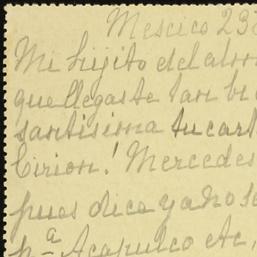 Mescico 23
Mi hijito del alm
que llegaste tan bi
santisima tu cart
Cirion! Mercedes
pues dice ya no se
pª Acapulco etc,